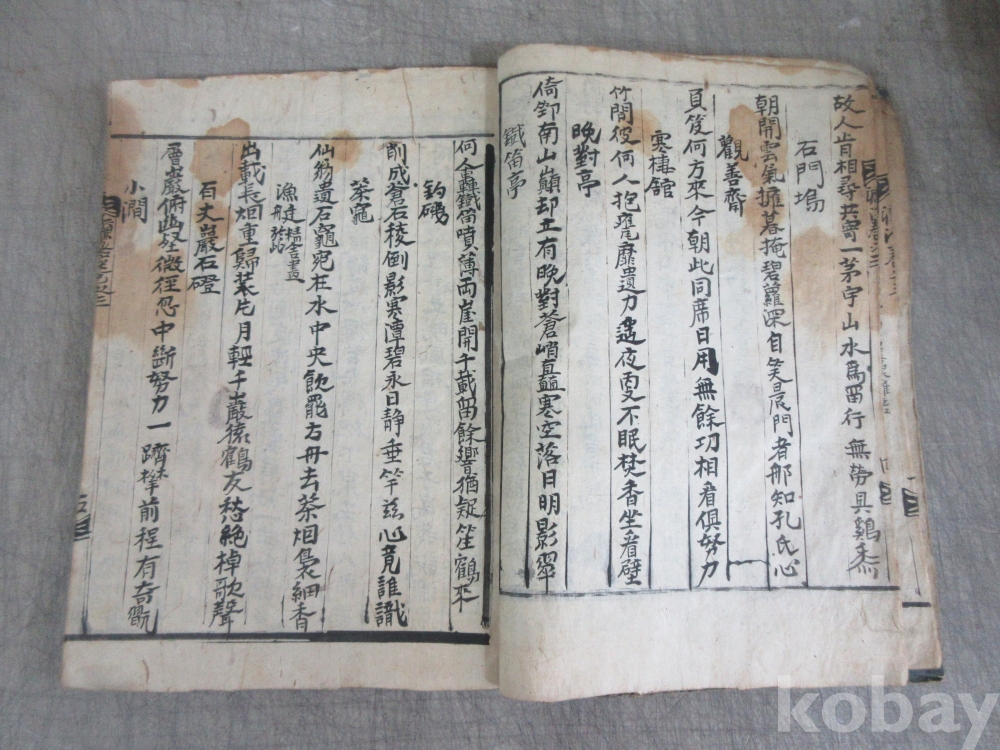 故人肯相尋共寄一茅宇山水為留行無勞具鷄黍
石門塢
朝開雲氣擁暮掩碧蘿深自笑晨門者那知孔氏心
觀善齋
負笈何方來今朝此同席日用無餘功相看俱努力
寒棲館
竹間彼何人抱甕靡遺力遙夜更不眠焚香坐看壁
晚對亭
倚筇南山巔却立有晚對蒼峭矗寒空落日明影翠
鐵笛亭
何人轟鐵笛噴薄兩崖開千載留餘響猶疑笙鶴來
釣磯
削成蒼石稜倒影寒潭碧永日静垂竿茲心竟誰識
茶竈
仙翁遺石竈宛在水中央飲罷方舟去茶烟裊細香
漁艇
出載長烟重歸裝片月輕千巖猿鶴友愁絶棹歌聲
百丈巖石磴
層巖俯幽壑微徑忽中斷努力一躋攀前程有奇觀
小澗
kobay